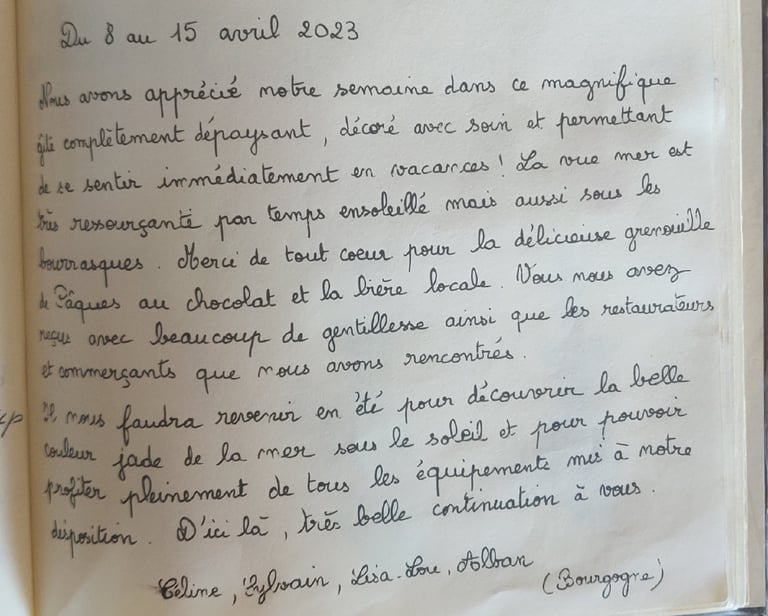 Du 8 au 15 avril 2023
Nous avons apprécié notre semaine dans ce magnifique
gîte complètement dépaysant, décoré avec soin et permettant
de se sentir immédiatement en vacances ! La vue mer est
très ressourçante par temps ensoleillé mais aussi sous les
bourrasques. Merci de tout coeur pour la délicieuse grenouille
de Pâques au chocolat et la bière locale. Vous nous avez
reçus avec beaucoup de gentillesse ainsi que les restaurateurs
et commerçants que nous avons rencontrés.
Il nous faudra revenir en été pour découvrir la belle
couleur jade de la mer sous le soleil et pour pouvoir
profiter pleinement de tous les équipements mis à notre
disposition. D'ici là, très belle continuation à vous.
Céline, Sylvain, Lisa-Lou, Alban
(Bourgogne)